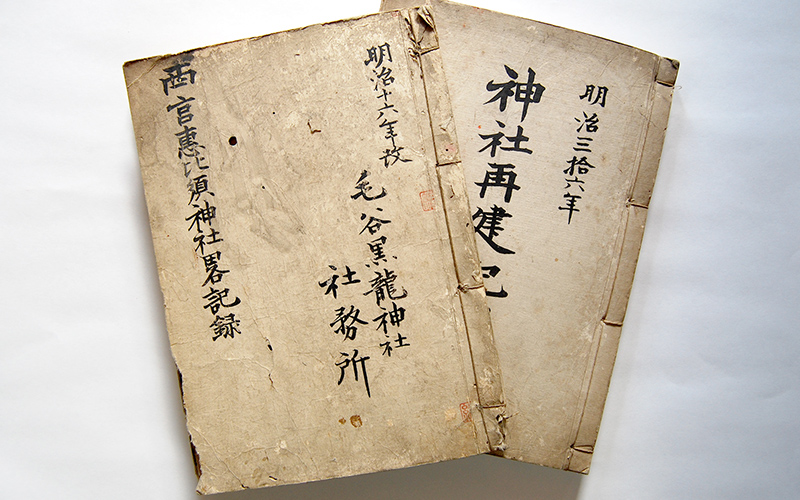 明治三拾六年
神社再建記
明治十六年改
毛谷黒龍神社
社務所
西宮惠比須神社畧記録